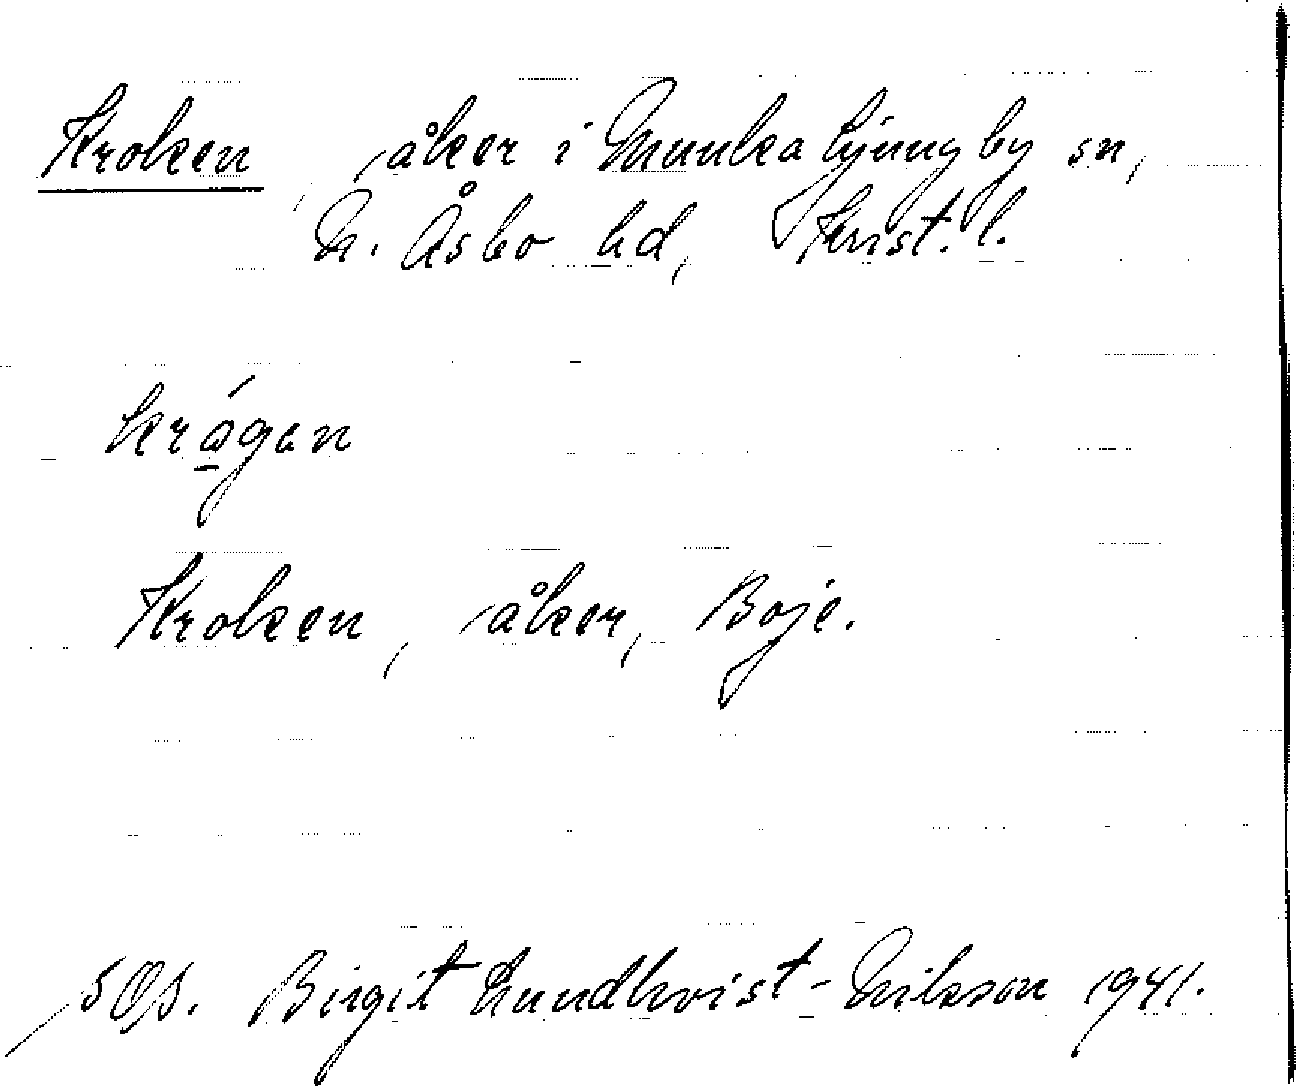 Kroken, åker i Munka Ljungby sn,
N. Åsbo hd, Krist. l.
krǫ́gan
Kroken, åker, Boje.
Birgit Lundkvist-Nilsson 1941.